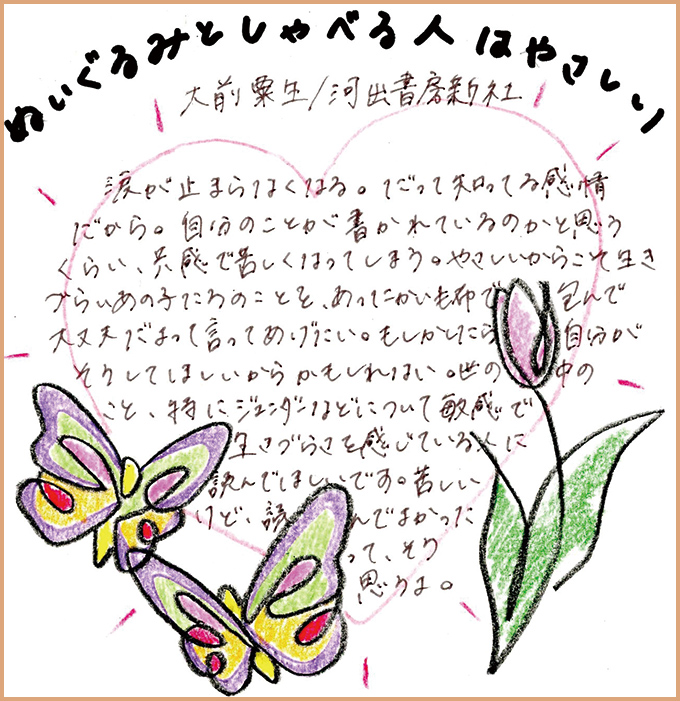 ぬいぐるみとしゃべる人はやさしい
大前粟生/河出書房新社
涙が止まらなくなる。だって知ってる感情
だから。自分のことが書かれているのかと思う
くらい、共感で苦しくなってしまう。やさしいからこそ生き
づらいあの子たちのことを、あったかい毛布で包んで
大丈夫だよって言ってあげたい。もしかしたら自分が
そうしてほしいからかもしれない。世の中の
こと、特にジェンダーなどについて敏感で
生きづらさを感じている人に
読んでほしいです。苦しい
けど、読んでよかった
って、そう
思うよ。